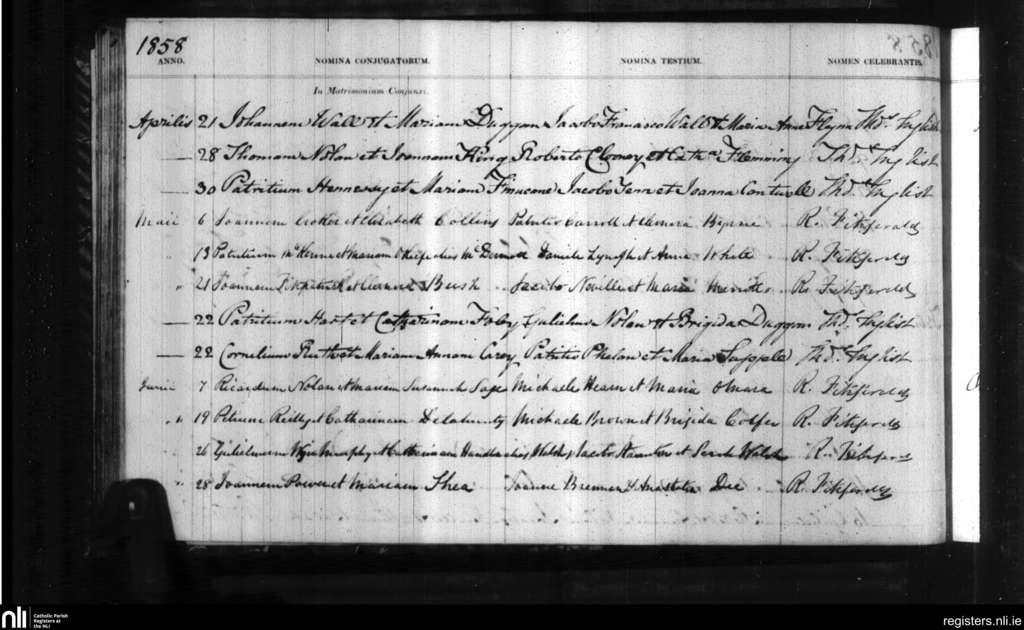 1858
ANNO. NOMINA CONJUGATORUM. NOMINA TESTIUM. NOMEN CELEBRANTIS.
In Matrimonium Conjunxi.
Aprilis 21 Johannem Wall et Mariam Duggan Jacobo Francisco Wall & Maria Anna Flynn Thos. English
28 Thomam Nolan et Joannam King Roberto Clooney et Flemming Thos. English
30 Patritium Hennessy et Mariam Finucane Jacobo et Joanna Thos. English
Maii 6 Joannem et Elizabeth Collins Patritio Carroll et Byrne R. Fitzgerald
13 Patritium et Mariam Daniele et Anna White R. Fitzgerald
21 Joannem Fitzpatrick et Bush Jacobo Neville et Maria R. Fitzgerald
22 Patritium Hart et Catharinam Foley Gulielmo Nolan et Brigida Duggan Thos. English
22 Cornelium et Mariam Annam Carey Patritio Phelan et Maria Supple Thos. English
Junii 7 Ricardum Nolan et Mariam Susannah Michaele Hearn et Maria Omara R. Fitzgerald
19 Petrum Reilly et Catharinam Delahunty Michaele Brown et Brigida Colfer R. Fitzgerald
26 Gulielmum Murphy et Jacobo et Sarah Walsh R. Fitzger
28 Joannem Power et Mariam Shea Joanne Brennan & Anastatia Dee R. Fitzgerald
nli Catholic Parish Registers at the NLI
registers.nli.ie